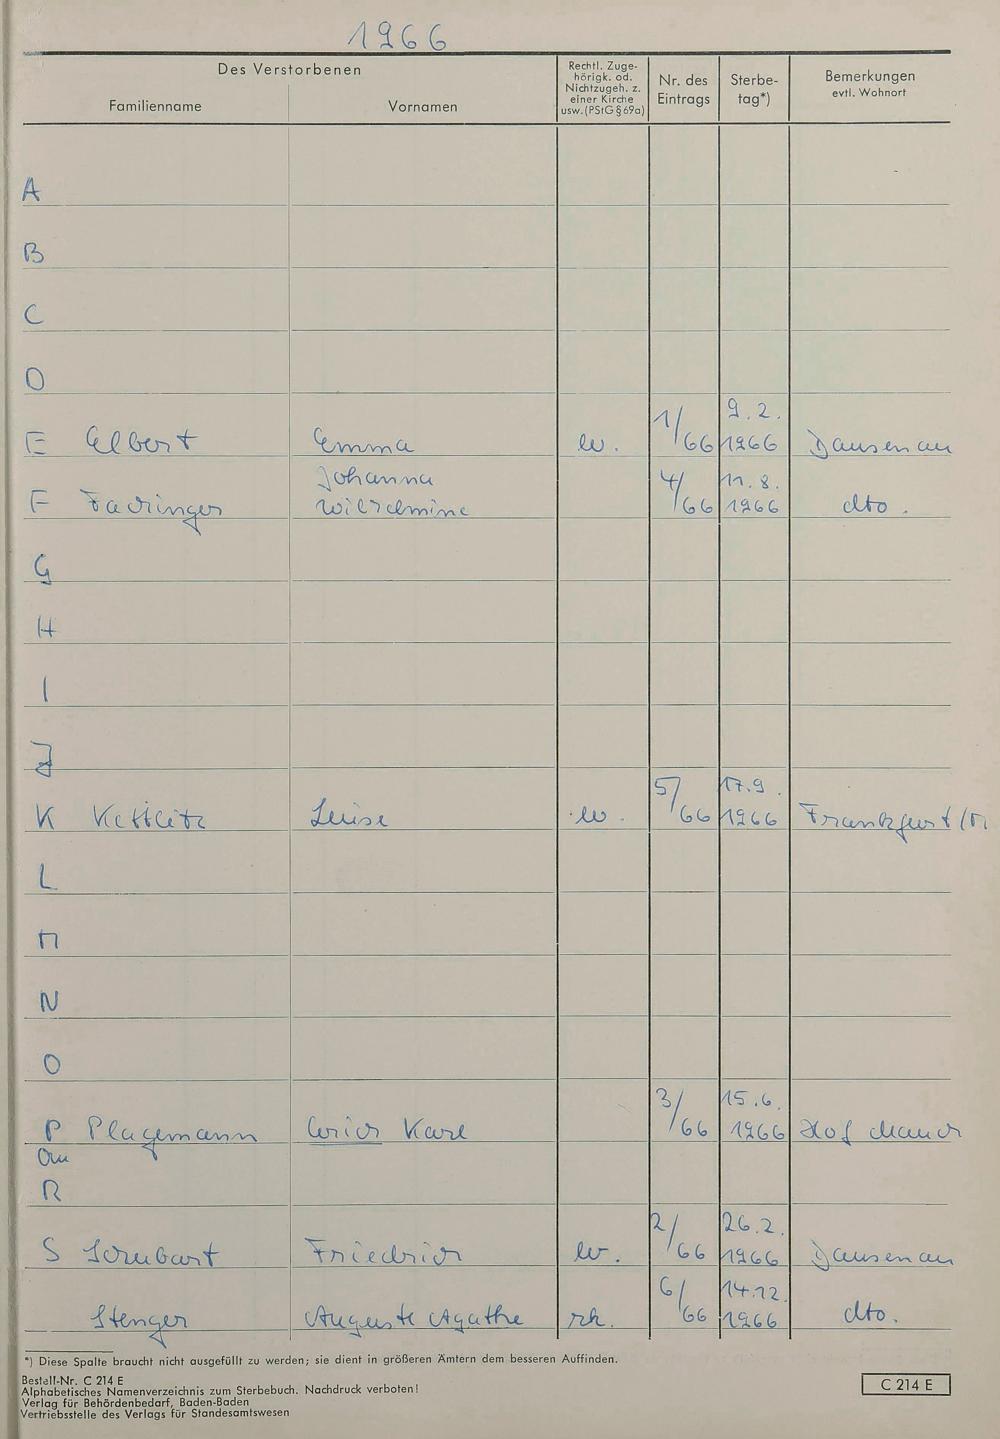 1966
Des Verstorbenen
Familienname
Vornamen
Rechtl. Zuge-
hörigk. od.
Nichtzugeh. z.
einer Kirche
usw.(PStG § 69a)
Nr. des
Eintrags
Sterbe-
tag*)
Bemerkungen
evtl. Wohnort
A
B
C
D
E Elbert Emma ev. 1/66 9.2. 1966 Dausenau
F Fachinger Johanna Wilhelmine 4/66 11.8. 1966 dto.
G
H
I
J
K Kettlitz Luise ev. 5/66 17.9. 1966 Frankfurt/M
L
M
N
O
P Plagemann Erich Karl 3/66 15.6. 1966 Hof Mauch
Qu
R
S Schubart Friedrich ev. 2/66 26.2. 1966 Dausenau
Stenger Auguste Agathe rk. 6/66 14.12. 1966 dto.
*) Diese Spalte braucht nicht ausgefüllt zu werden; sie dient in größeren Ämtern dem besseren Auffinden.
Bestell-Nr. C 214 E
Alphabetisches Namenverzeichnis zum Sterbebuch. Nachdruck verboten!
Verlag für Behördenbedarf, Baden-Baden
Vertriebsstelle des Verlags für Standesamtswesen
C 214 E